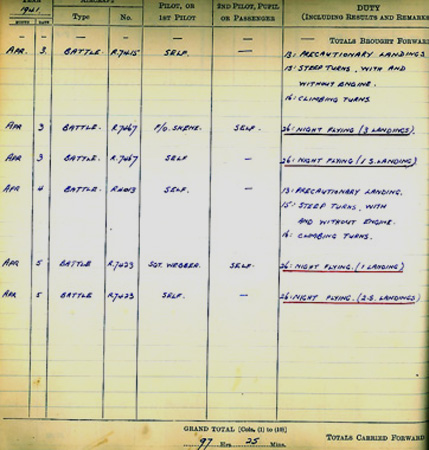 YEAR AIRCRAFT PILOT, OR 2ND PILOT, PUPIL DUTY
1941 Type No. 1ST PILOT OR PASSENGER (INCLUDING RESULTS AND REMARKS
MONTH DATE
— — — — TOTALS BROUGHT FORWARD
APR. 3. BATTLE. R.7415 SELF. — 13: PRECAUTIONARY LANDINGS
15: STEEP TURNS, WITH AND
WITHOUT ENGINE.
16: CLIMBING TURNS
APR 3 BATTLE. R.7467 P/O. SKENE. SELF. 26: NIGHT FLYING (3 LANDINGS).
APR 3 BATTLE. R.7467 SELF — 26: NIGHT FLYING (1 S. LANDING)
APR 4 BATTLE. SELF. — 13: PRECAUTIONARY LANDING.
15: STEEP TURNS, WITH
AND WITHOUT ENGINE.
16: CLIMBING TURNS.
APR 5 BATTLE R.7423 SGT. WEBBER. SELF. 26: NIGHT FLYING. (1 LANDING)
APR 5 BATTLE R.7423 SELF. — 26: NIGHT FLYING. (2.S. LANDINGS)
GRAND TOTAL [Cols. (1) to (10)]
97 Hrs. 25 Mins. TOTALS CARRIED FORWARD